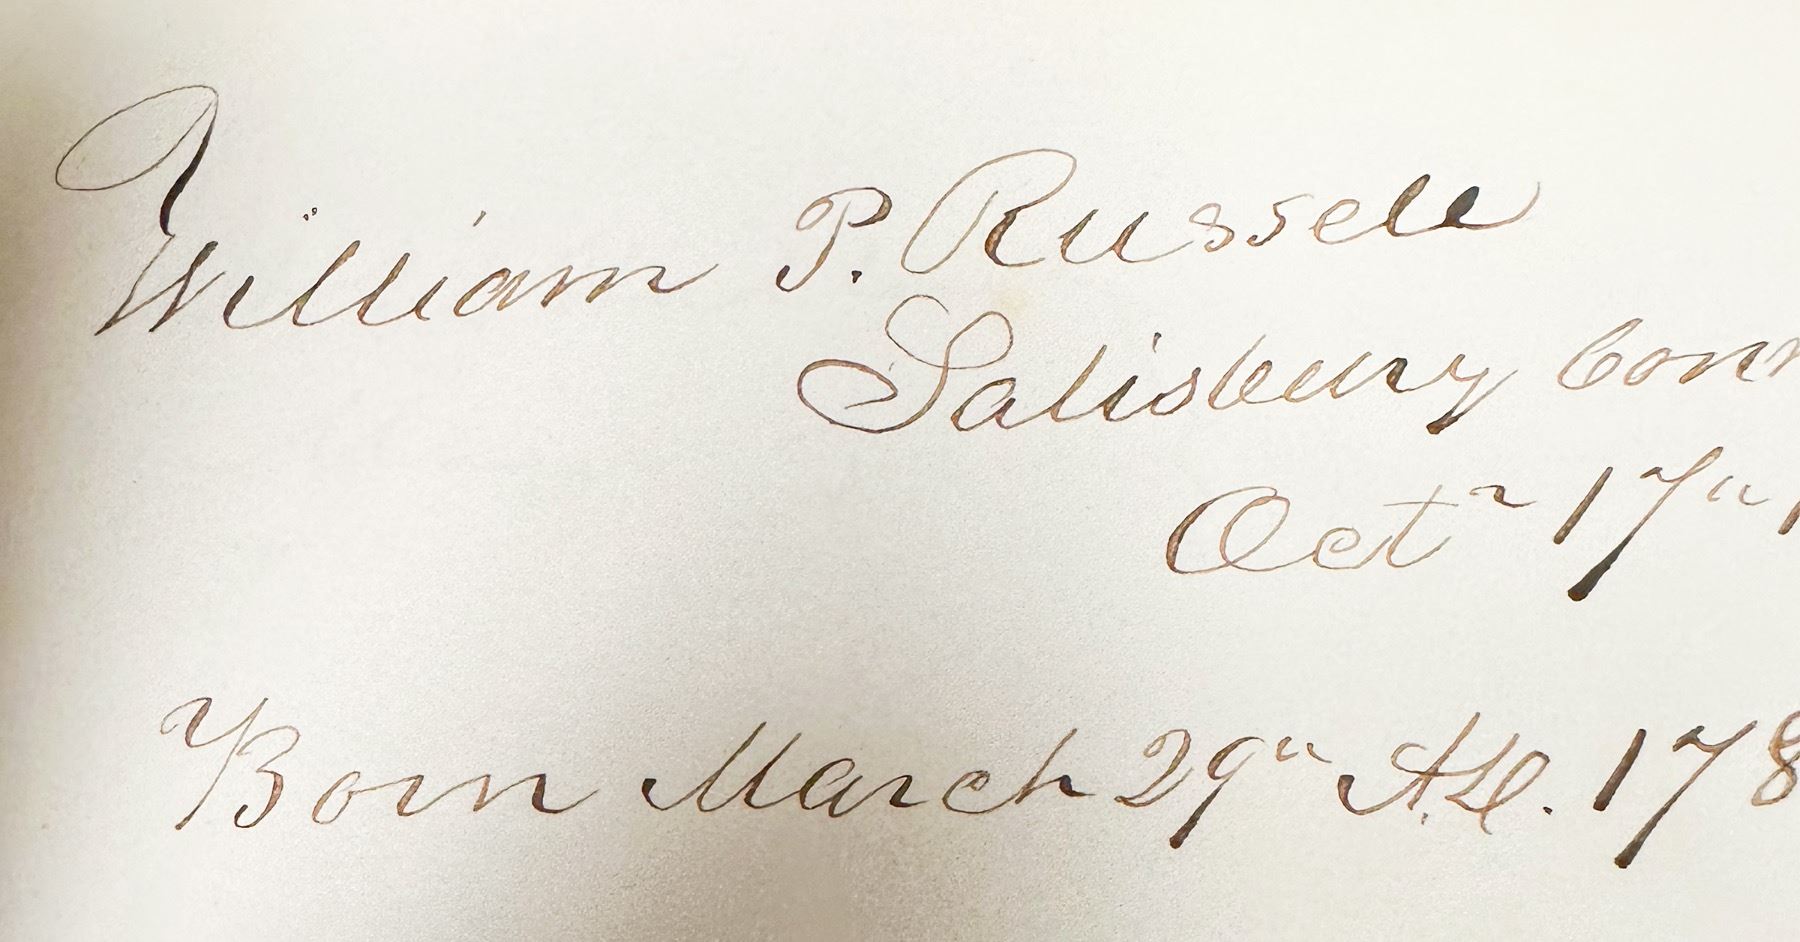 William P. Russell
Salisbury Conn
Octr 17th 1
Born March 29th A.D. 178